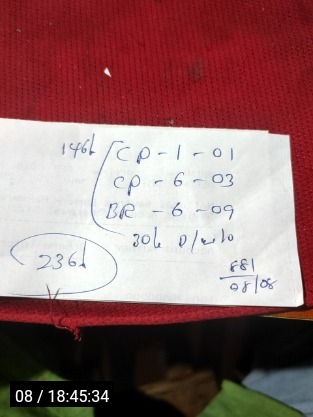 146L CP - 1 - 01
CP - 6 - 03
BR - 6 - 09
30L
236L
881
08/08
08 / 18:45:34